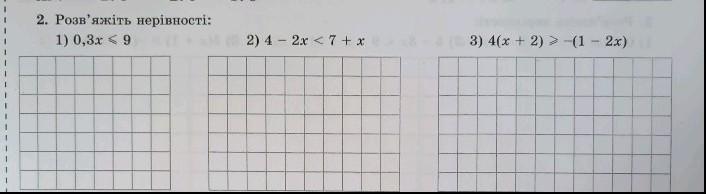 2. Розв'яжіть нерівності:
1) 0,3x ⩽ 9 2) 4 − 2x < 7 + x 3) 4(x + 2) ⩾ −(1 − 2x)